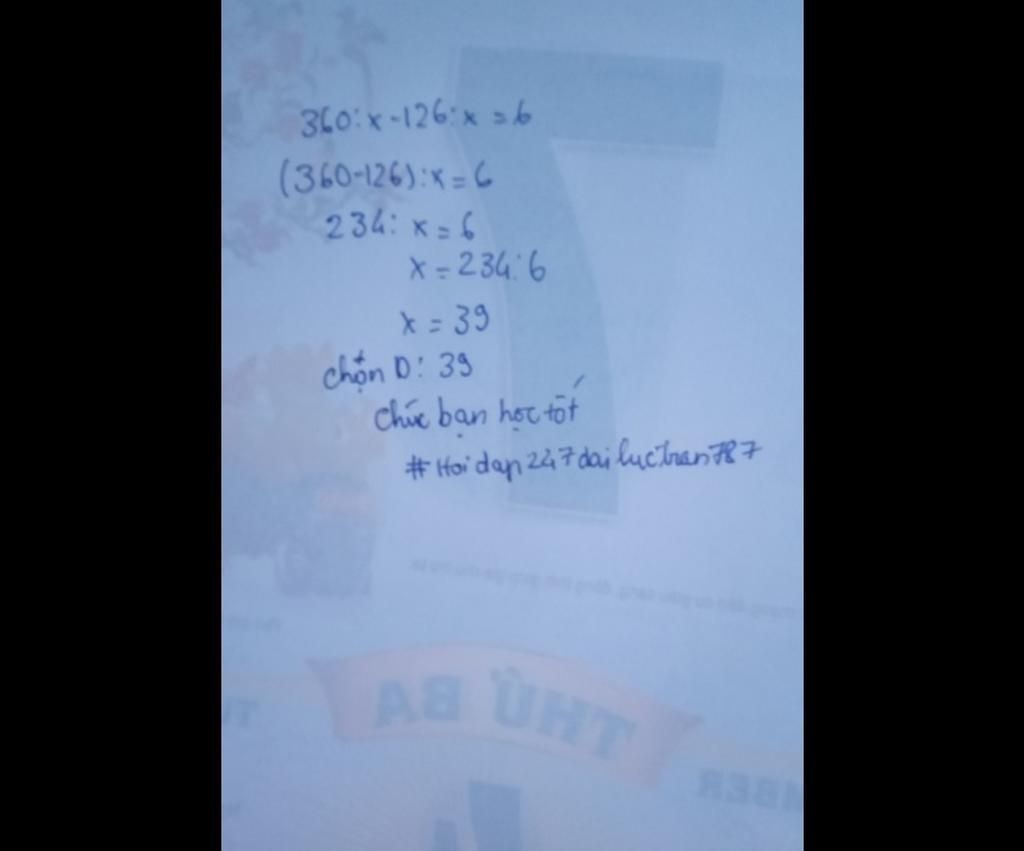 360:x-126:x=6
(360-126):x=6
234:x=6
x=234:6
x=39
chọn D: 39
chúc bạn học tốt
#Hoidap247dailuctran787
THỨ BA
MBER